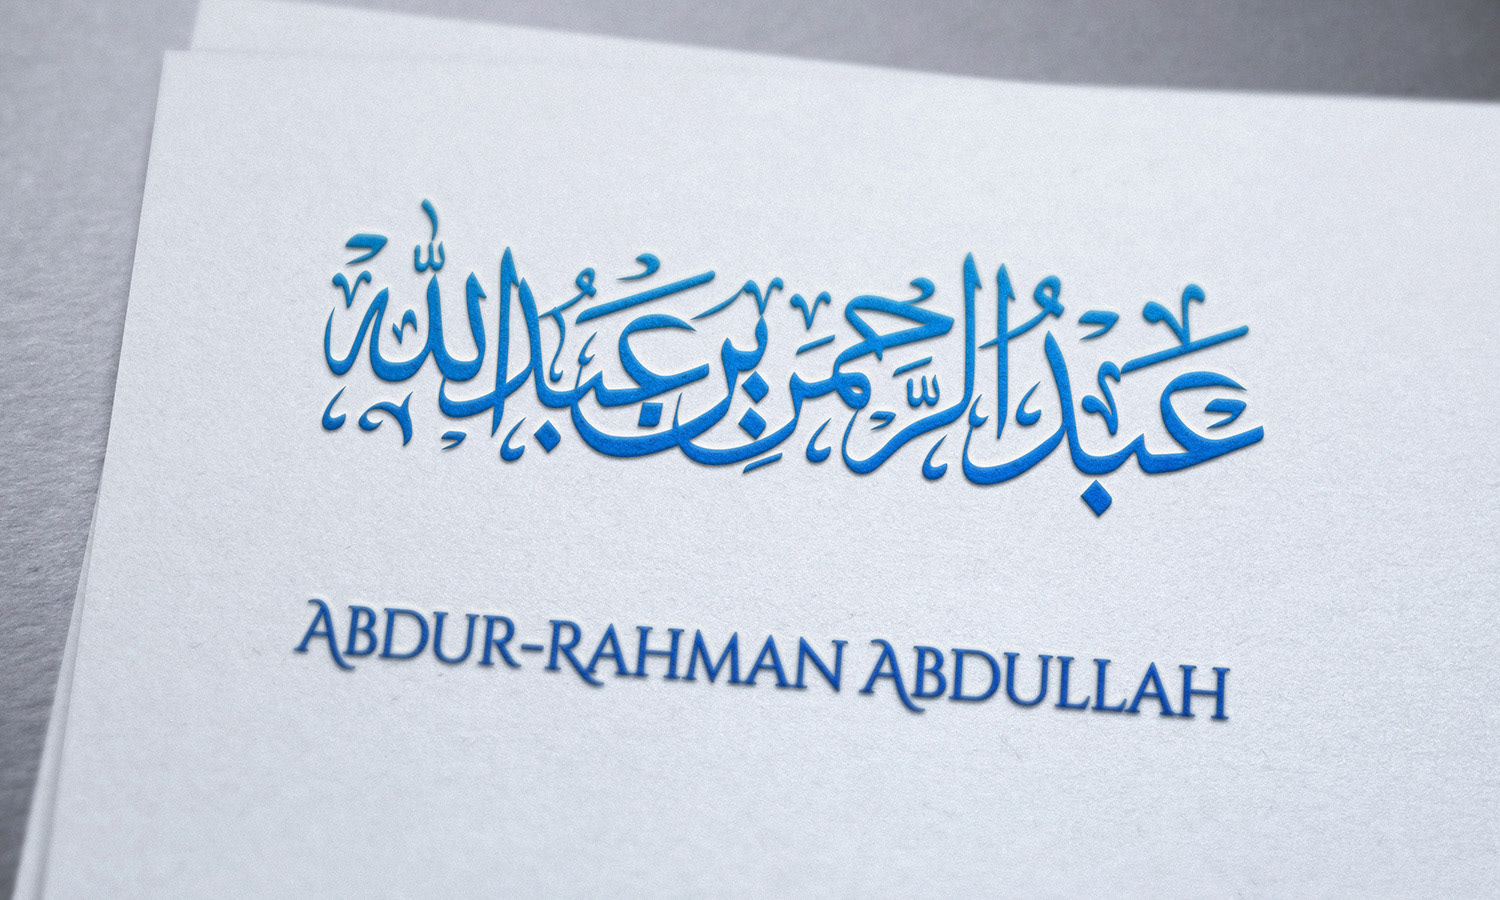 عبد الرحمن بن عبد الله
Abdur-Rahman Abdullah